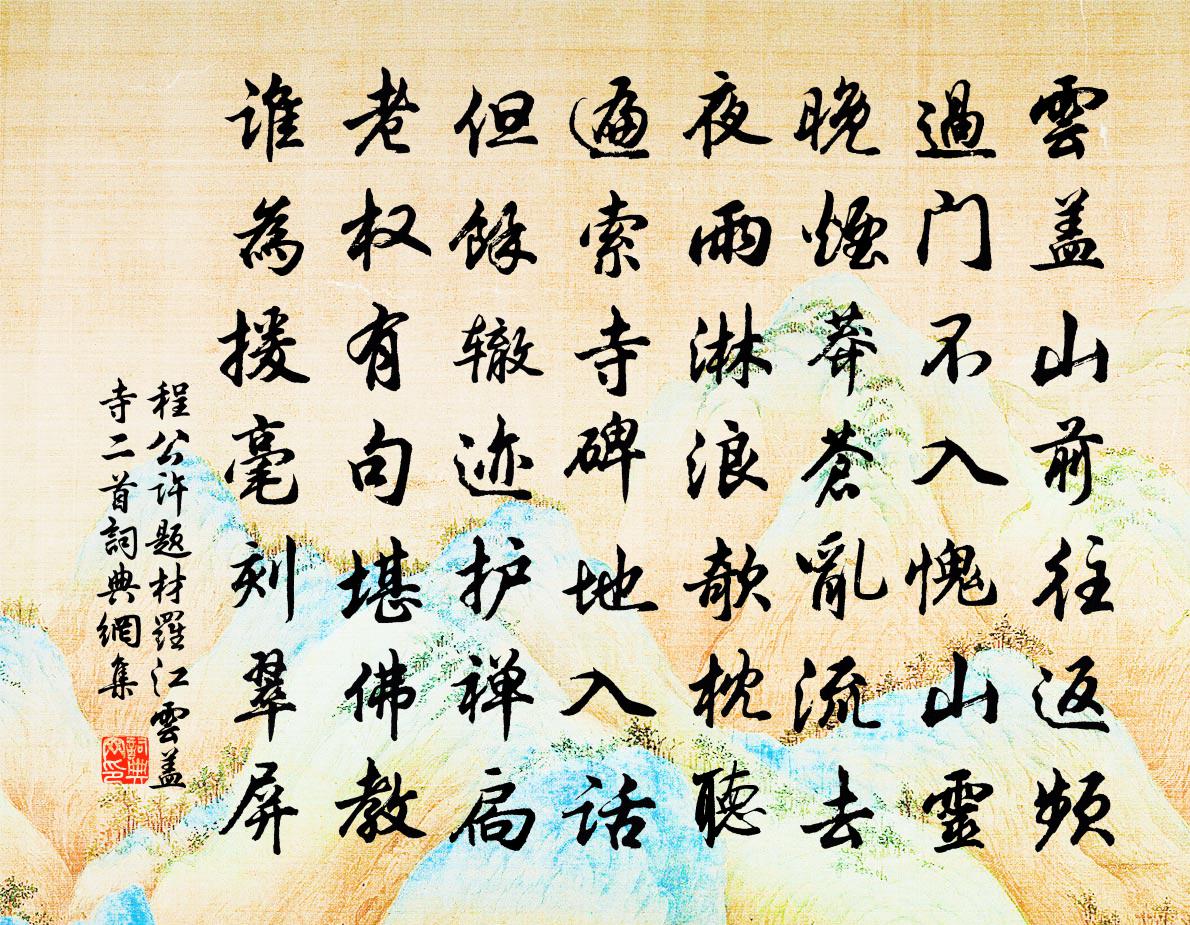 雲盖山前往返频
過门不入愧山靈
晚煙莽蒼亂流去
夜雨淋浪欹枕聽
遍索寺碑地入话
但餘辙迹护禅扃
老权有句堪佛教
谁為援毫刻翠屏
程公许题材羅江雲盖
寺二首詞典網集